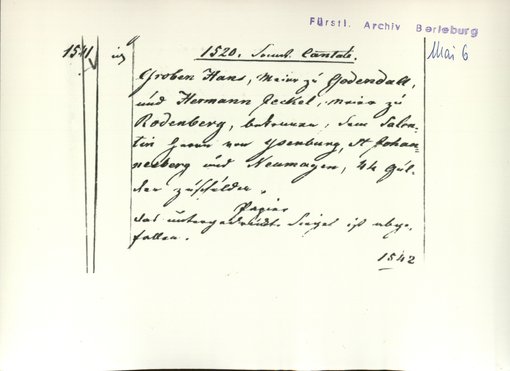 Fürstl. Archiv Berleburg
1541 1520. Sonnt. Cantate. Mai 6
Groben Hans, Meier zu Godendall,
und Hermann Jeckel, Meier zu
Rodenberg, bekennen, dem Salen-
tin Herrn von Ysenburg, St Johan-
nesberg und Neumagen, 44 Gul-
den zu schulden.
Papier
das untergedruckte Siegel ist abge-
fallen.
1542